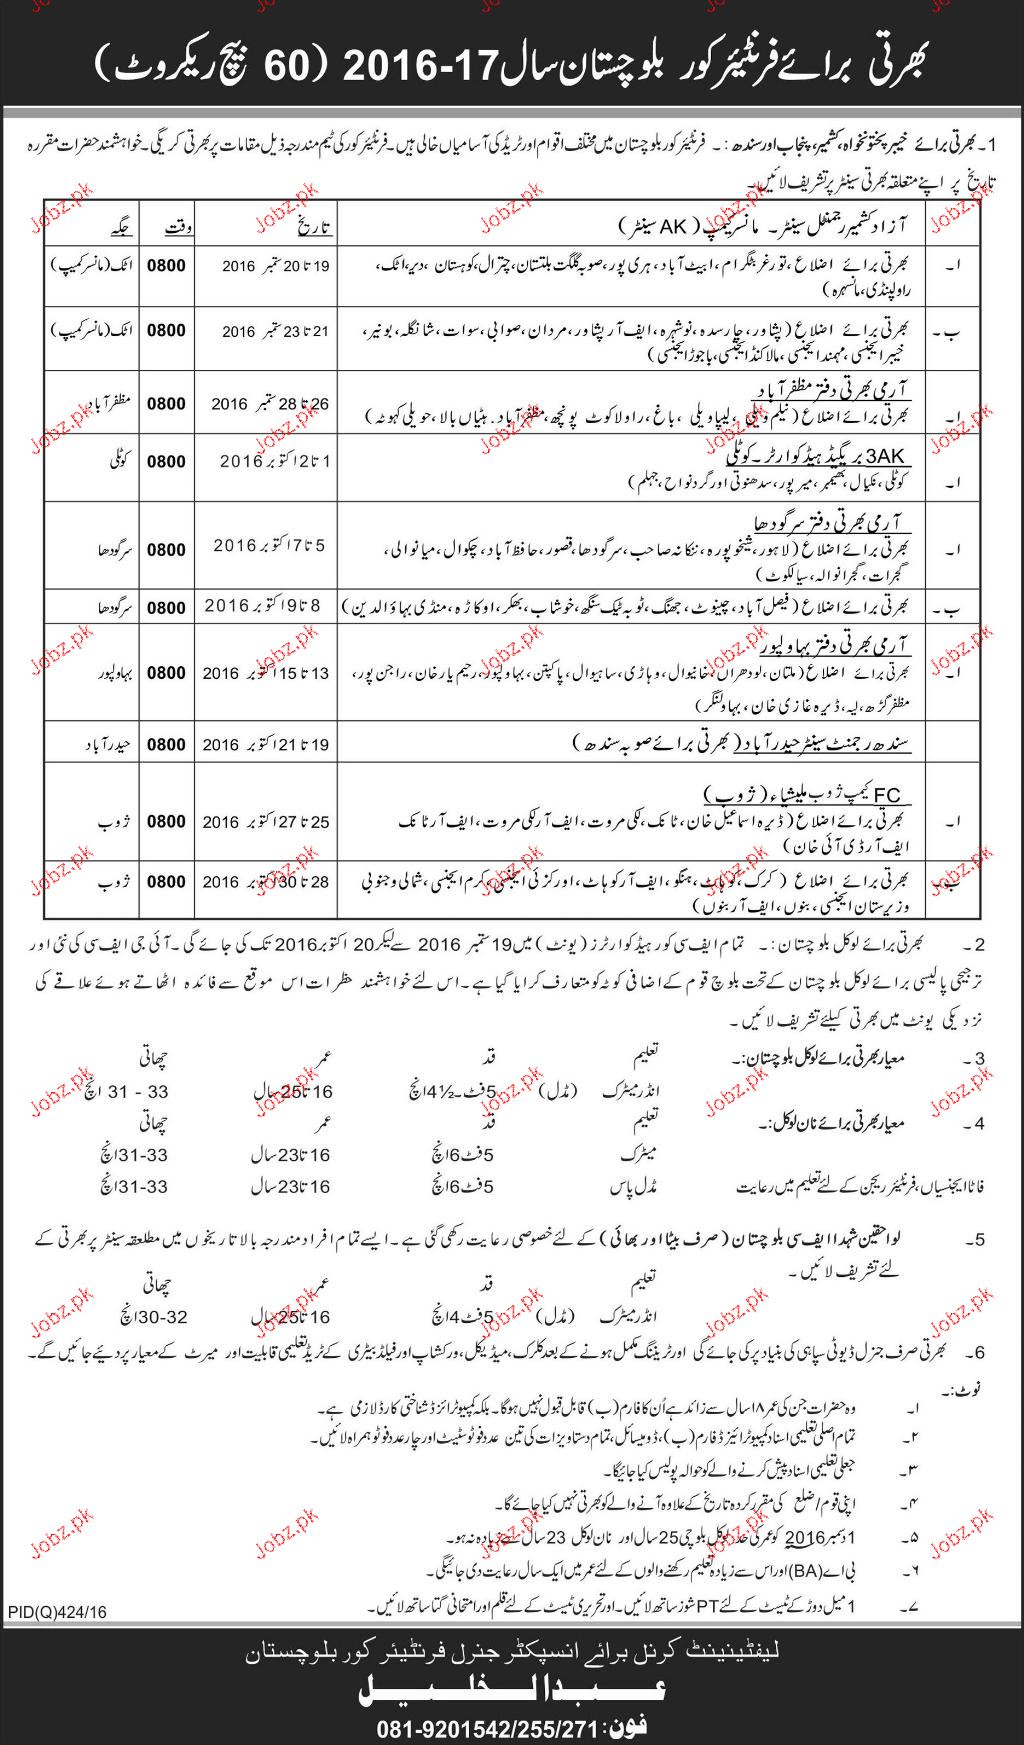 بھرتی برائے فرنٹیئر کور بلوچستان سال 17-2016 (60 بیچ ریکروٹ)
1۔ بھرتی برائے خیبر پختونخواہ، کشمیر، پنجاب اور سندھ :۔ فرنٹیئر کور بلوچستان میں مختلف اقوام اور ٹریڈ کی آسامیاں خالی ہیں۔ فرنٹیئر کور کی ٹیم مندرجہ ذیل مقامات پر بھرتی کریگی۔ خواہشمند حضرات مقررہ
تاریخ پر اپنے متعلقہ بھرتی سینٹر پر تشریف لائیں۔
آزاد کشمیر رجمنٹل سینٹر۔ مانسر کیمپ (AK سینٹر) تاریخ وقت جگہ
ا۔ بھرتی برائے اضلاع ،تورغر بٹگرام، ایبٹ آباد، ہری پور، صوبہ گلگت بلتستان، چترال، کوہستان، دیر، اٹک، 19 تا 20 ستمبر 2016 0800 اٹک (مانسر کیمپ)
راولپنڈی، مانسہرہ)
ب۔ بھرتی برائے اضلاع (پشاور، چارسدہ، نوشہرہ، ایف آر پشاور، مردان، صوابی، سوات، شانگلہ، بونیر، 21 تا 23 ستمبر 2016 0800 اٹک (مانسر کیمپ)
خیبر ایجنسی، مہمند ایجنسی، مالاکنڈ ایجنسی، باجوڑ ایجنسی)
آرمی بھرتی دفتر مظفر آباد
ا۔ بھرتی برائے اضلاع (نیلم ویلی، لیپا ویلی، باغ، راولاکوٹ پونچھ، مظفر آباد۔ ہٹیاں بالا، حویلی کہوٹہ) 26 تا 28 ستمبر 2016 0800 مظفر آباد
3AK بریگیڈ ہیڈ کوارٹر۔ کوٹلی
ا۔ کوٹلی، نکیال، بھیمبر، میرپور، سدھنوتی اور گردنواح، جہلم) 1 تا 2 اکتوبر 2016 0800 کوٹلی
آرمی بھرتی دفتر سرگودھا
ا۔ بھرتی برائے اضلاع (لاہور، شیخوپورہ، ننکانہ صاحب، سرگودھا، قصور، حافظ آباد، چکوال، میانوالی، 5 تا 7 اکتوبر 2016 0800 سرگودھا
گجرات، گجرانوالہ، سیالکوٹ)
ب۔ بھرتی برائے اضلاع (فیصل آباد، چنیوٹ، جھنگ، ٹوبہ ٹیک سنگھ، خوشاب، بھکر، اوکاڑہ، منڈی بہاؤالدین) 8 تا 9 اکتوبر 2016 0800 سرگودھا
آرمی بھرتی دفتر بہاولپور
ا۔ بھرتی برائے اضلاع (ملتان، لودھراں، خانیوال، وہاڑی، ساہیوال، پاکپتن، بہاولپور، رحیم یار خان، راجن پور، 13 تا 15 اکتوبر 2016 0800 بہاولپور
مظفر گڑھ، لیہ، ڈیرہ غازی خان، بہاولنگر)
سندھ رجمنٹ سینٹر حیدر آباد (بھرتی برائے صوبہ سندھ) 19 تا 21 اکتوبر 2016 0800 حیدر آباد
FC کیمپ ژوب ملیشاء (ژوب)
ا۔ بھرتی برائے اضلاع (ڈیرہ اسماعیل خان، ٹانک، لکی مروت، ایف آر لکی مروت، ایف آر ٹانک 25 تا 27 اکتوبر 2016 0800 ژوب
ایف آر ڈی آئی خان)
ب۔ بھرتی برائے اضلاع (کرک، کوہاٹ، ہنگو، ایف آر کوہاٹ، اورکزئی ایجنسی، کرم ایجنسی، شمالی و جنوبی 28 تا 30 اکتوبر 2016 0800 ژوب
وزیرستان ایجنسی، بنوں، ایف آر بنوں)
2۔ بھرتی برائے لوکل بلوچستان :۔ تمام ایف سی کور ہیڈ کوارٹرز (یونٹ) میں 19 ستمبر 2016 سے لیکر 20 اکتوبر 2016 تک کی جائے گی۔ آئی جی ایف سی کی نئی اور
ترجیحی پالیسی برائے لوکل بلوچستان کے تحت بلوچ قوم کے اضافی کوٹہ کو متعارف کرایا گیا ہے۔ اس لئے خواہشمند حظرات اس موقع سے فائدہ اٹھاتے ہوئے علاقے کی
نزدیکی یونٹ میں بھرتی کیلئے تشریف لائیں۔
3۔ معیار بھرتی برائے لوکل بلوچستان:۔ تعلیم قد عمر چھاتی
انڈر میٹرک (مڈل) 5 فٹ۔ 4½ انچ 16 تا 25 سال 33 - 31 انچ
4۔ معیار بھرتی برائے نان لوکل:۔ تعلیم قد عمر چھاتی
میٹرک 5 فٹ 6 انچ 16 تا 23 سال 31-33 انچ
فاٹا ایجنسیاں، فرنٹیئر ریجن کے لئے تعلیم میں رعایت مڈل پاس 5 فٹ 6 انچ 16 تا 23 سال 31-33 انچ
5۔ لواحقین شہدا ایف سی بلوچستان (صرف بیٹا اور بھائی) کے لئے خصوصی رعایت رکھی گئی ہے۔ ایسے تمام افراد مندرجہ بالا تاریخوں میں مطلعقہ سینٹر پر بھرتی کے
لئے تشریف لائیں۔
تعلیم قد عمر چھاتی
انڈر میٹرک (مڈل) 5 فٹ 4 انچ 16 تا 25 سال 30-32 انچ
6۔ بھرتی صرف جنرل ڈیوٹی سپاہی کی بنیاد پر کی جائے گی اور ٹریننگ مکمل ہونے کے بعد کلرک، میڈیکل، ورکشاپ اور فیلڈ بیٹری کے ٹریڈ تعلیمی قابلیت اور میرٹ کے معیار پر دیئے جائیں گے۔
نوٹ:۔
۱۔ وہ حضرات جن کی عمر ۱۸ سال سے زائد ہے اُن کا فارم (ب) قابل قبول نہیں ہوگا۔ بلکہ کمپیوٹرائزڈ شناختی کارڈ لازمی ہے۔
۲۔ تمام اصلی تعلیمی اسناد کمپیوٹرائیزڈ فارم (ب)، ڈومیسائل، تمام دستاویزات کی تین عدد فوٹوسٹیٹ اور چار عدد فوٹو ہمراہ لائیں۔
۳۔ جعلی تعلیمی اسناد پیش کرنے والے کو حوالہ پولیس کیا جائیگا۔
۴۔ اپنی قوم/ ضلع کی مقرر کردہ تاریخ کے علاوہ آنے والے کو بھرتی نہیں کیا جائے گا۔
۵۔ 1 دسمبر 2016 کو عمر کی حد لوکل بلوچی 25 سال اور نان لوکل 23 سال سے زیادہ نہ ہو۔
۶۔ بی اے (BA) اور اس سے زیادہ تعلیم رکھنے والوں کے لئے عمر میں ایک سال رعایت دی جائیگی۔
۷۔ 1 میل دوڑ کے ٹیسٹ کے لئے PT شوز ساتھ لائیں۔ اور تحریری ٹیسٹ کے لئے قلم اور امتحانی گتا ساتھ لائیں۔
PID(Q)424/16
لیفٹیننٹ کرنل برائے انسپکٹر جنرل فرنٹیئر کور بلوچستان
عبدالخلیل
فون: 081-9201542/255/271
Jobz.pk